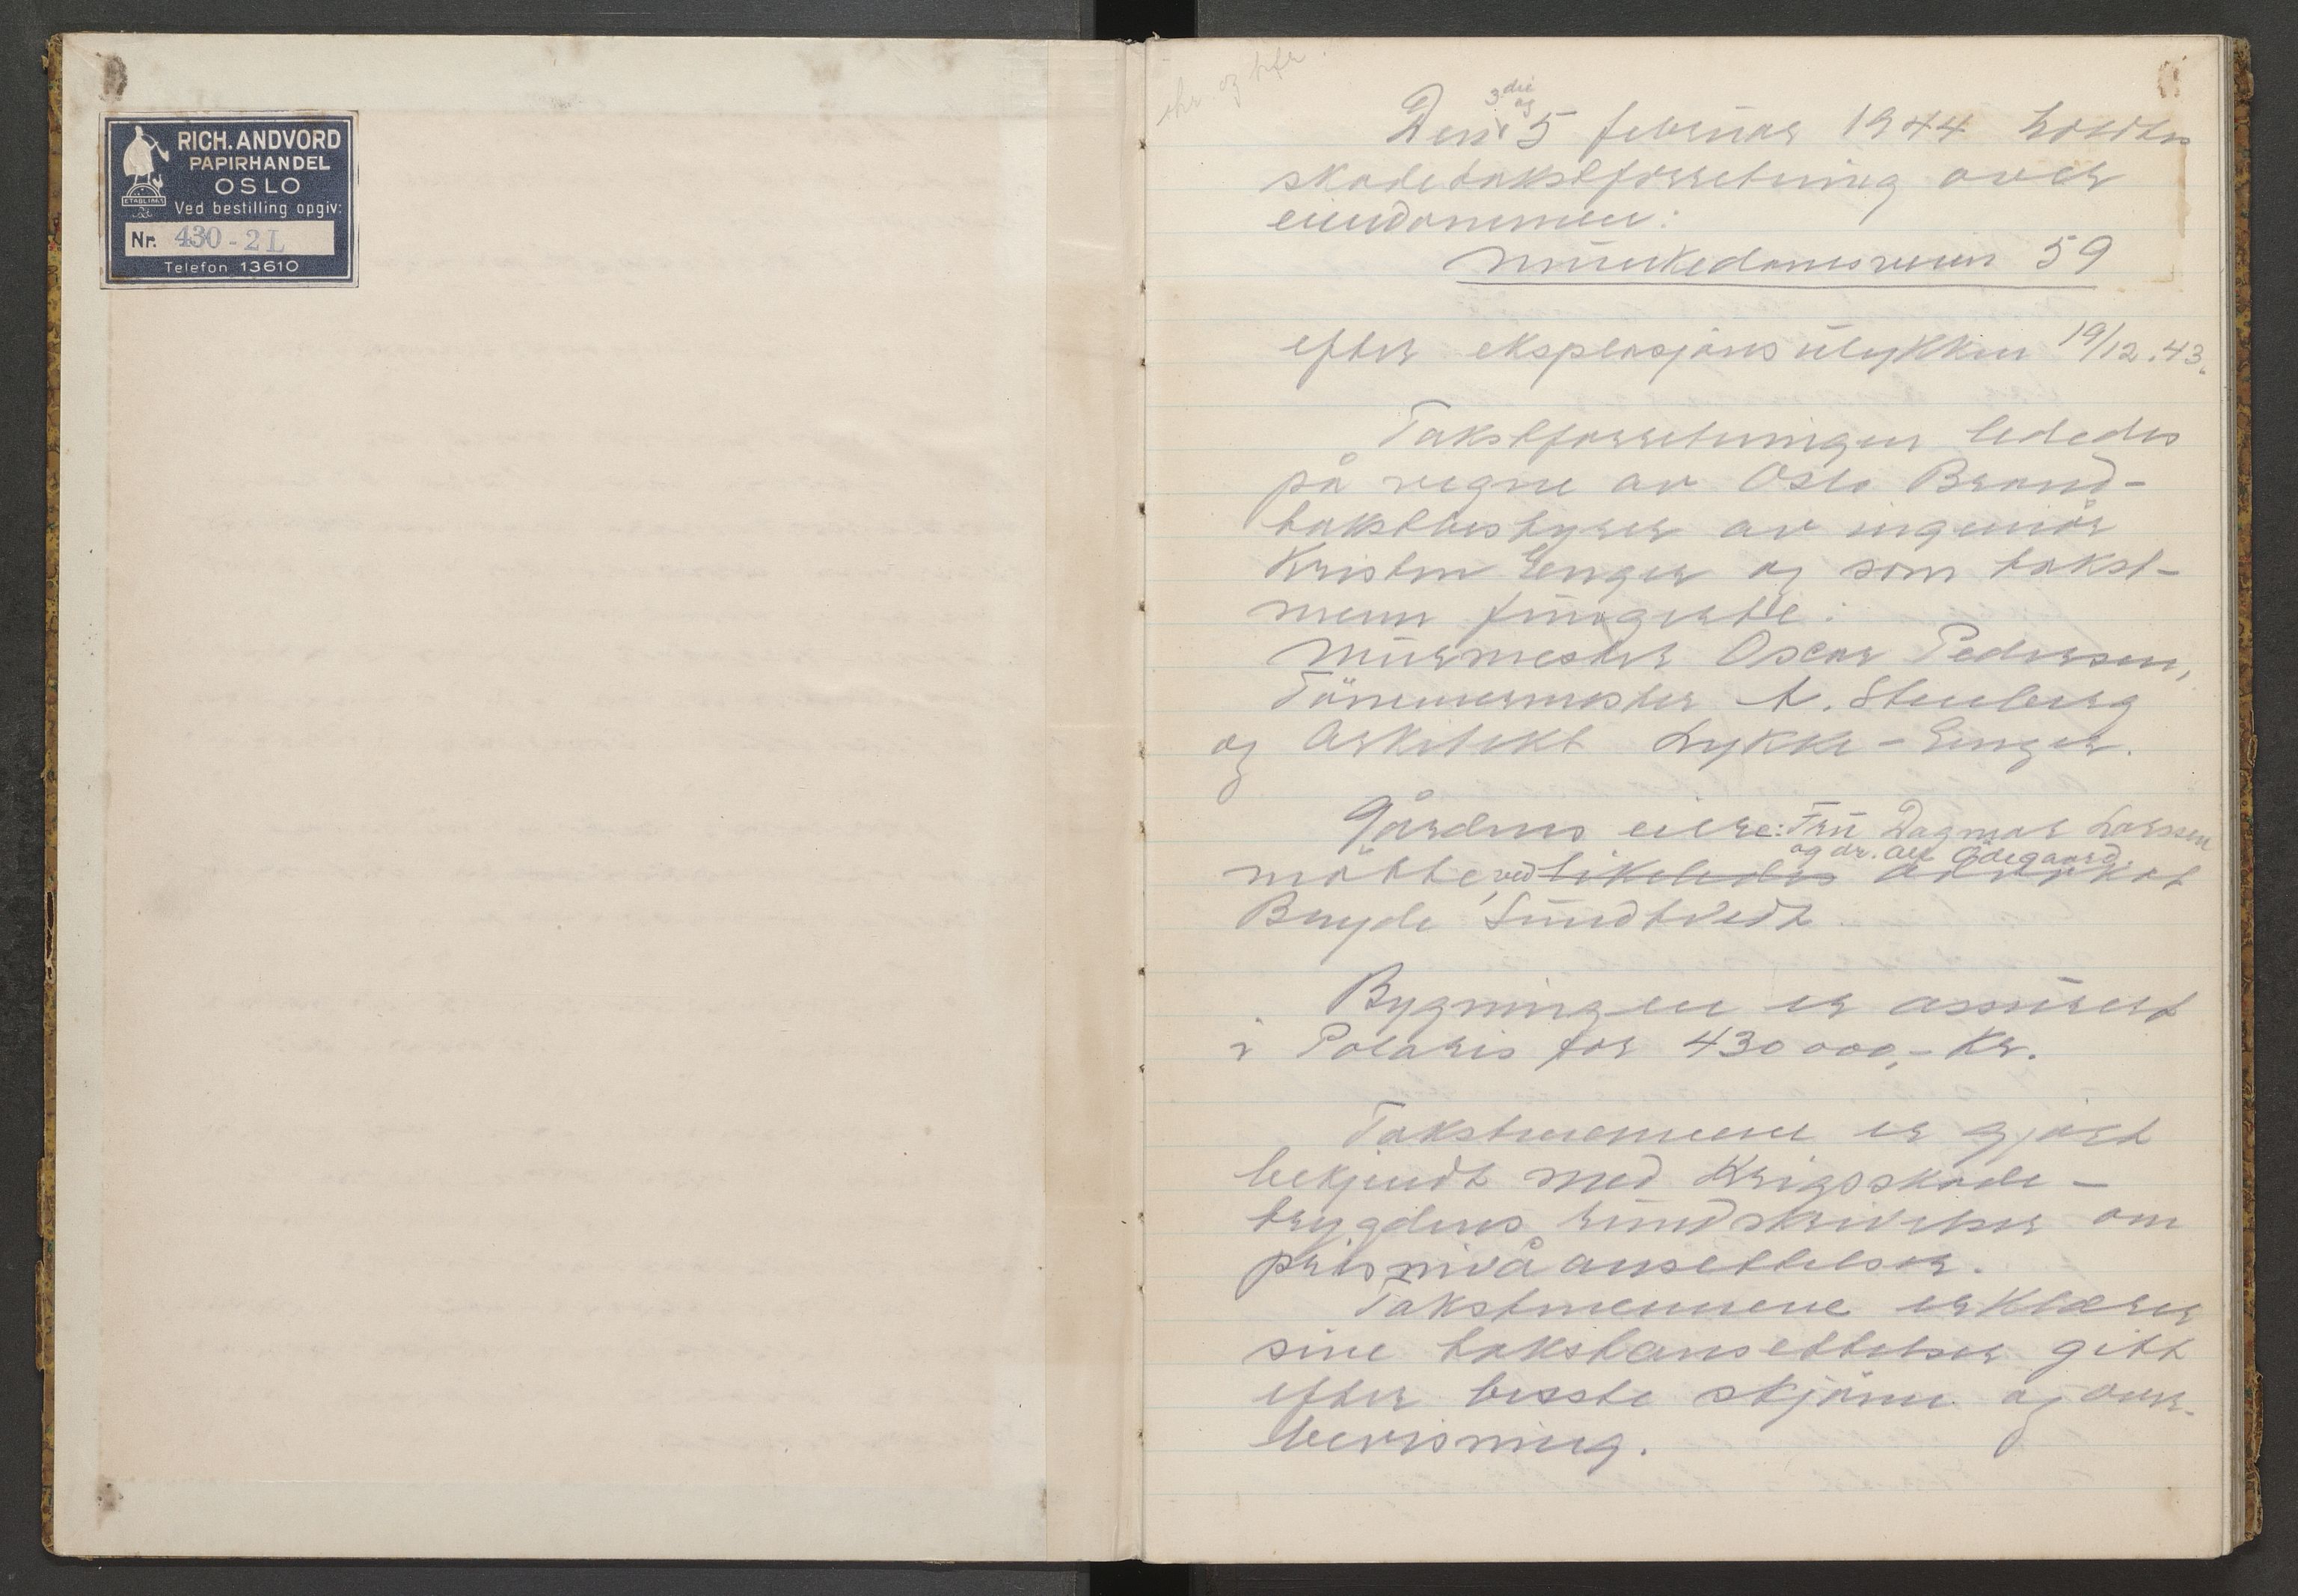 RICH. ANDVORD
PAPIRHANDEL
OSLO
ETABLERT
Ved bestilling opgiv:
Nr. 430-2L
Telefon 13610
3die og
Den 5 februar 1944 holdtes
skadetakstforretning over
eiendommen:
Munkedamsveien 59
efter eksplosjonsulykken 19/12.43.
Takstforretningen lededes
på vegne av Oslo Brand-
takstbestyrer av ingeniör
Kristen Enger og som takst-
menn fungerte:
Murmester Oscar Pedersen,
Tömmermester A. Stenberg
og Arkitekt Lykke-Enger.
Gårdens eiere: Fru Dagmar Larssen
og dr. Alf Ödegaard.
mötte, ved likeledes advokat
Bryde Sundtvedt.
Bygningen er assurert
i Polaris for 430000,- Kr.
Takstmennene er gjort
bekjendt med Krigsskade-
trygdens rundskrivelser om
prisnivåansettelser.
Takstmennene erklærer
sine takstansettelser gitt
efter beste skjönn og over-
bevisning.